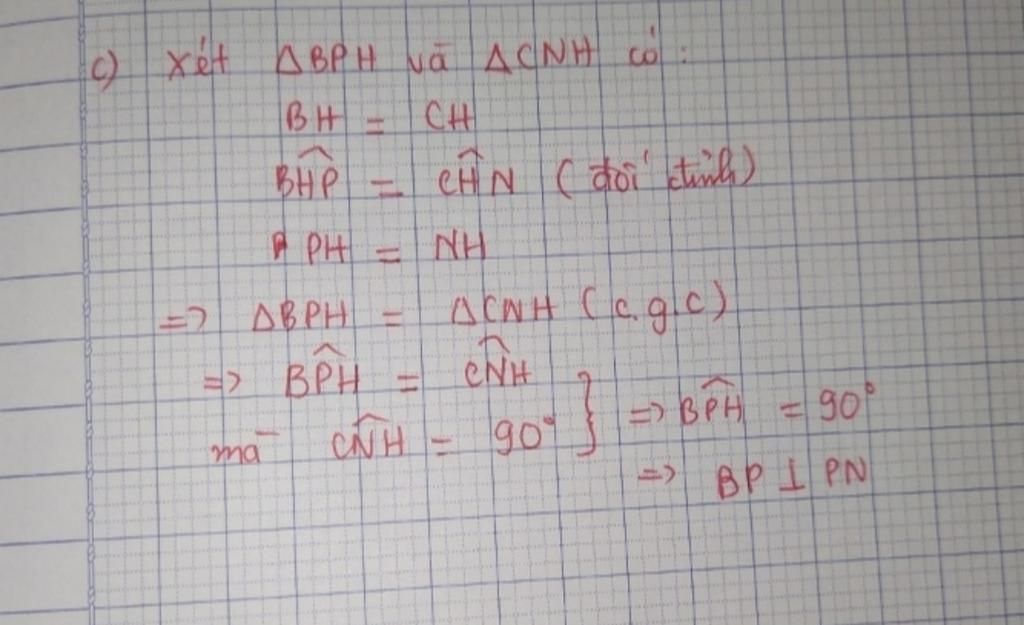 c) Xét ΔBPH và ΔCNH có:
BH = CH
BĤP = CĤN (đối đỉnh)
PH = NH
=> ΔBPH = ΔCNH (c.g.c)
=> BP̂H = CN̂H
mà CN̂H = 90° } => BP̂H = 90°
=> BP ⊥ PN